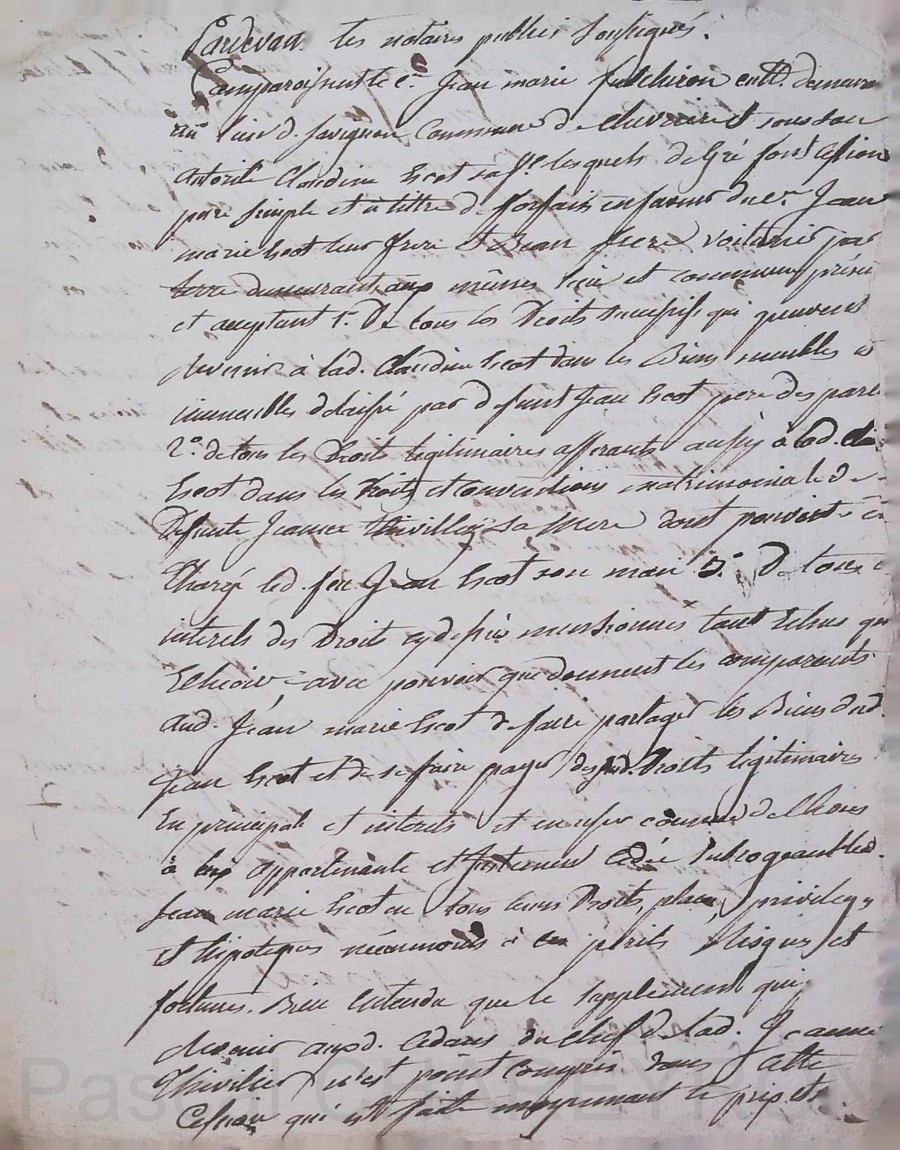 Pardevan les notaires publics soussignés.
Comparoissent le c.en Jean marie fulchiron cult. demeura
au lieu d. savignon Commune de chevrieres et sous son
autorité Claudine Escot sa f.e lesquels de gré font cession
pure simple et à titre de forfais en faveur du c.en Jean
marie Escot leur frere et Beau frere voiturier par
terre demeurant aux mêmes lieu et commune présen
et acceptant 1.o De tous les Droits successifs qui peuvent
devenir à lad. Claudine Escot dans les Biens meubles et
immeubles délaissé par défunt Jean Escot pere des part
2.o de tous les Droits légitimaires afferants aussy à lad.
Escot dans les Droits et conventions matrimoniale de
Défunte Jeanne Thivillier sa mere dont pouvoit
Chargé led. feu Jean Escot son mari 3.o De tous
interets des Droits cy dessus mensionnés tant Echus qu
Echoir avec pouvoir que donnent les comparents
aud. Jean marie Escot de faire partager les Biens dud.
Jean Escot et de se faire payer desd. Droits légitimaires
En principal et interets et en user comme de choses
à lui appartenante et justement cédée subrogeant led.
Jean marie Escot en tous leurs Droits, place, privileges
et hipoteques néanmoins à ses perils Risques et
fortunes. Bien Entendu que le supplement qui
devenir auxd. Cédans du chef de lad. Jeanne
Thivilier n'est point compris dans Cette
Cession qui est faite moyennant le prix et
Pascal CHAREYRON